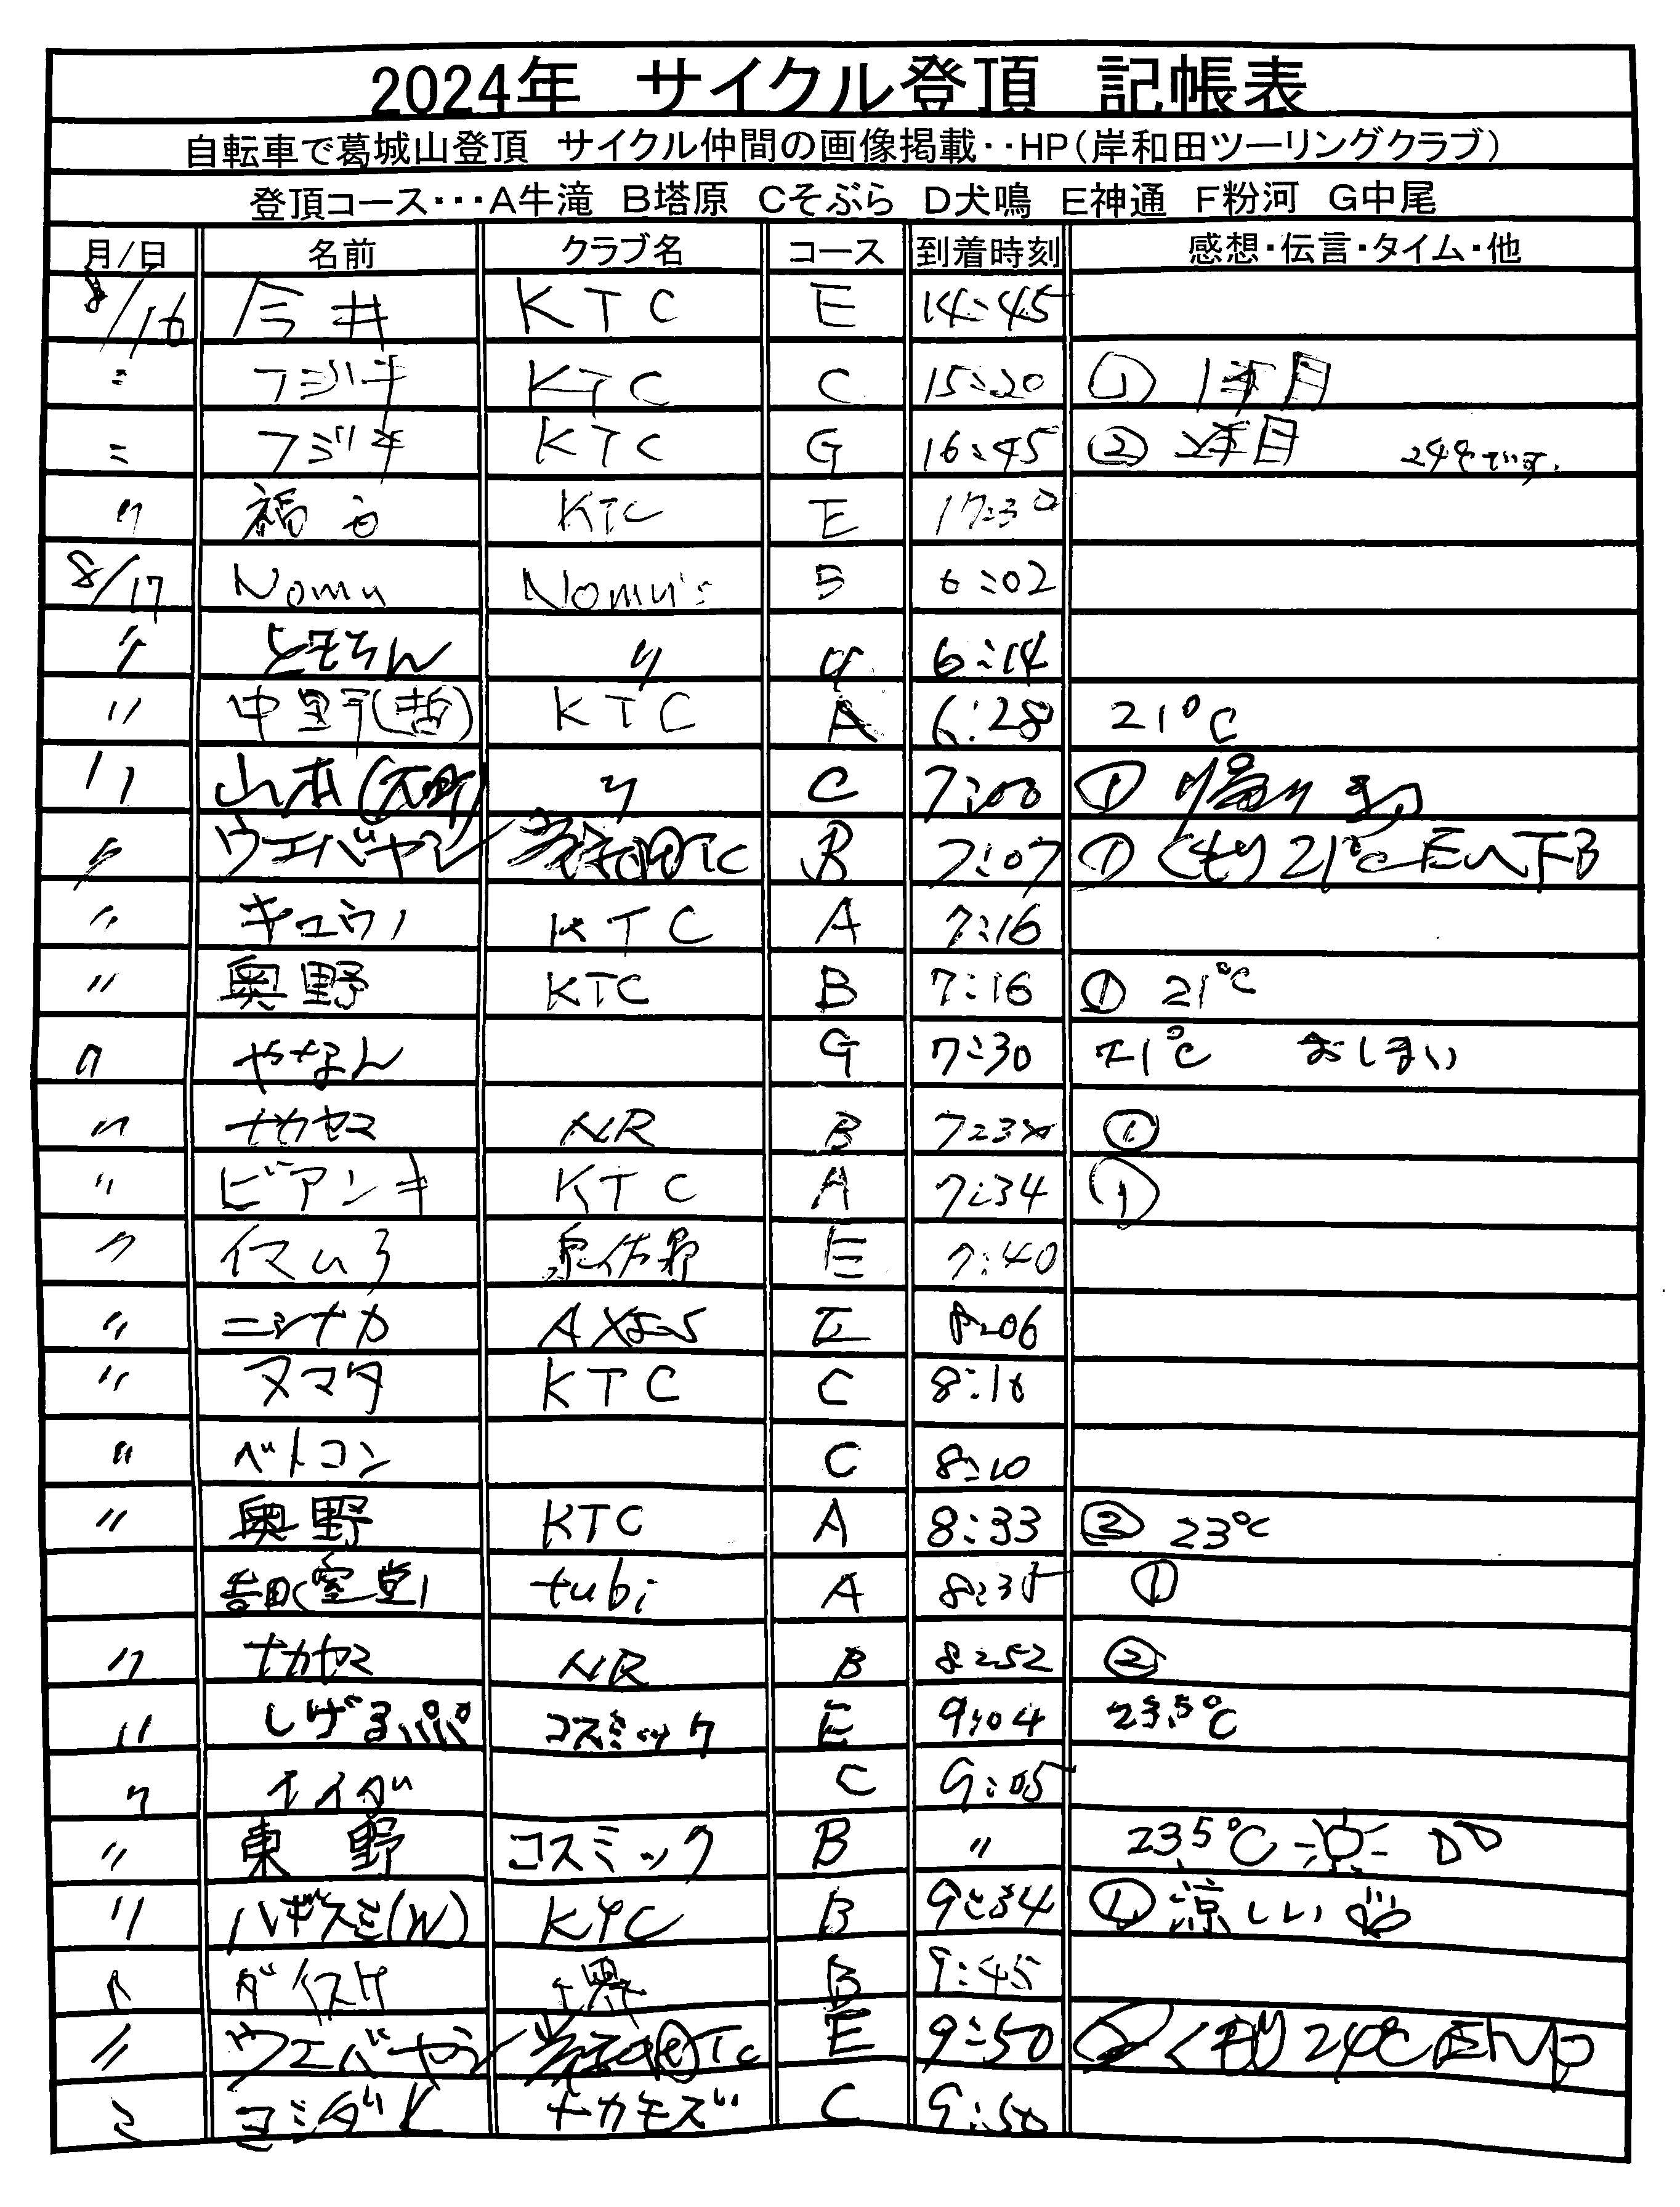 2024年 サイクル登頂 記帳表
自転車で葛城山登頂 サイクル仲間の画像掲載‥HP(岸和田ツーリングクラブ)
登頂コース･･･A牛滝 B塔原 Cそぶら D犬鳴 E神通 F粉河 G中尾
月/日 名前 クラブ名 コース 到着時刻 感想・伝言・タイム・他
8/16 今井 KTC E 14:45
〃 フジキ KTC C 15:20 ① 1本目
〃 フジキ KTC G 16:45 ② 2本目 24℃です.
〃 KTC E 17:30
8/17 Nomu Nomu's B 6:02
〃 ともちん 〃 〃 6:14
〃 中野(哲) KTC A 6:28 21℃
〃 山本 〃 C 7:00 ①
〃 ウエバヤシ TC B 7:07 ① くもり 21℃
〃 キュウリ KTC A 7:16
〃 奥野 KTC B 7:16 ① 21℃
〃 やなん G 7:30 21℃ おしまい
〃 ナカヤマ NR B ①
〃 ビアンキ KTC A 7:34 ①
〃 イマムラ 泉佐野 E 7:40
〃 ニシナカ E 8:06
〃 ヌマタ KTC C 8:10
〃 ベトコン C 8:10
〃 奥野 KTC A 8:33 ② 23℃
吉田(室堂) tubi A 8:35 ①
〃 ナカヤマ NR B 8:52 ②
〃 しげる コスミック E 9:04 23.5℃
〃 C 9:05
〃 東野 コスミック B 〃 23.5℃
〃 ハギスミ(W) KTC B 9:34 ① 涼しい
〃 ダイスケ 堺 B 9:45
〃 ウエバヤシ TC E 9:50 ② くもり 24℃
〃 ヨシダK ナカモズ C 9:50